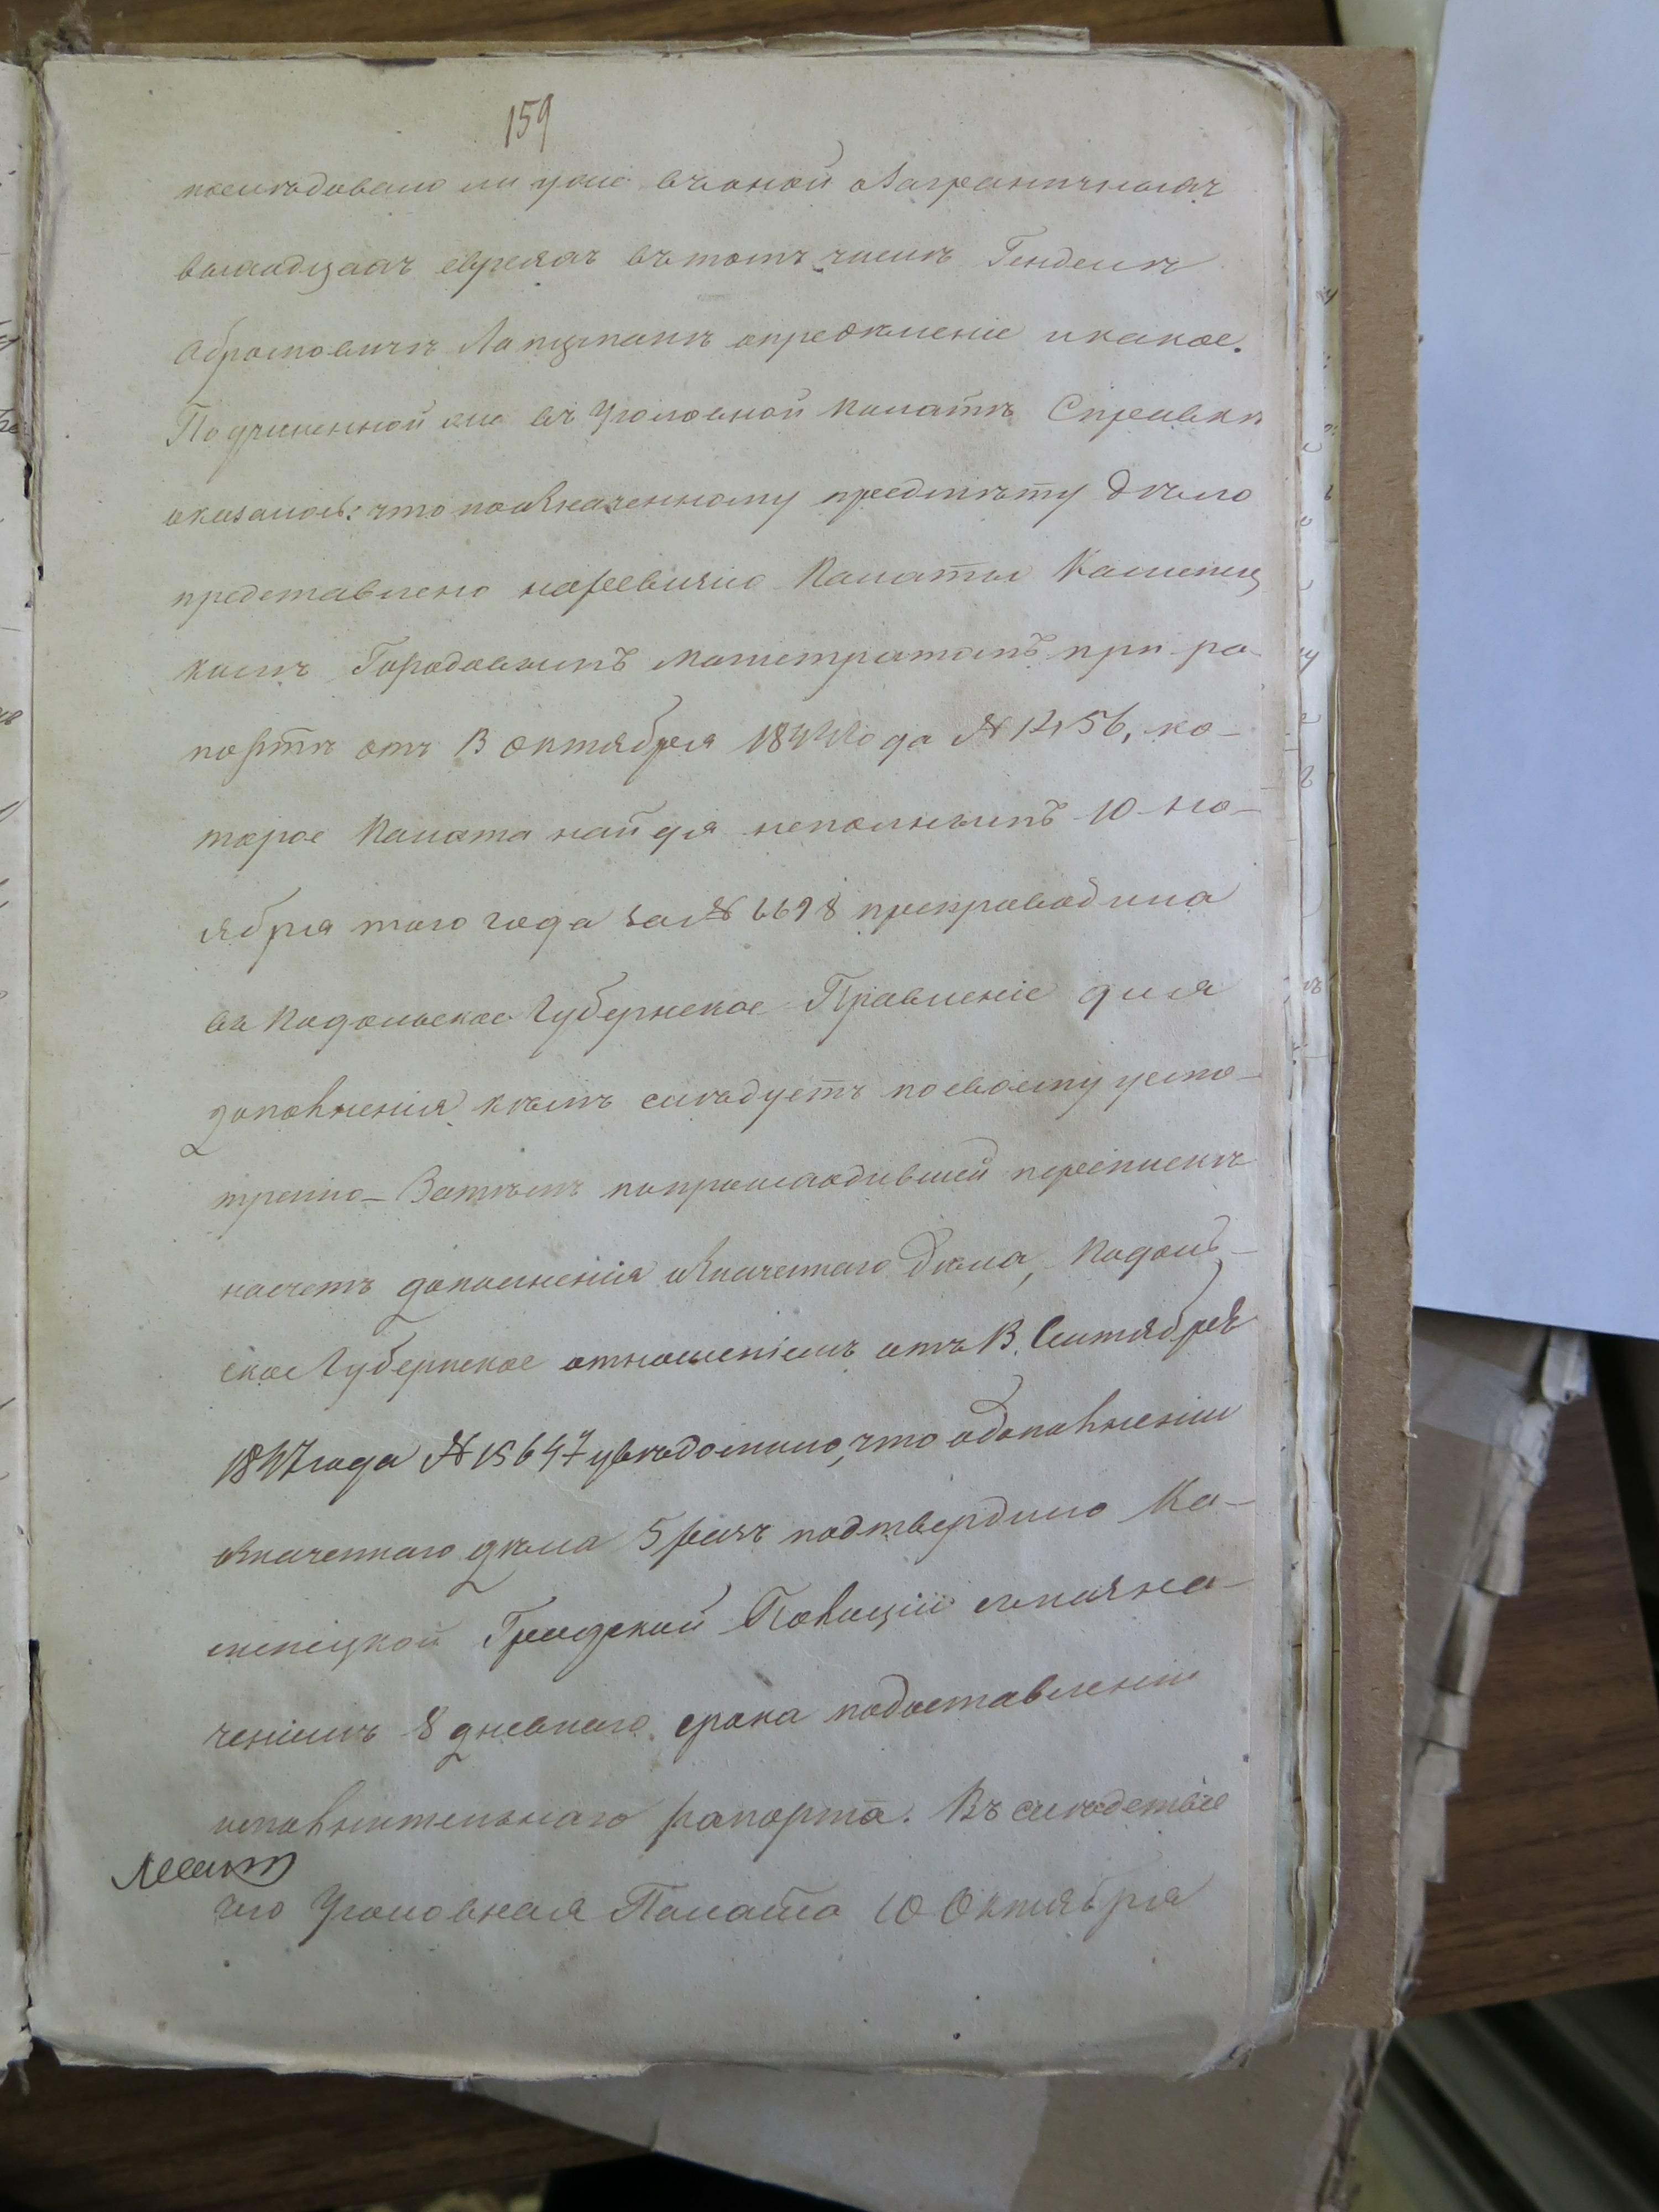 159
последовало ли уже въ оной о Заграничныхъ
выходцахъ евреяхъ въ томъ числѣ Гендель
Абрамовичъ Лапцманъ опредѣленіе и какое.
По учиненной же въ Уголовной Палатѣ Справкѣ
оказалось: что по означенному предмѣту дѣло
представлено на ревизію Палаты Каменец
кимъ Городовымъ Магистратомъ при ра
портѣ отъ 13 октября 184 года № 1456, ко-
торое Палата найдя неполнымъ 10 но-
ября того года за № 6698 препроводила
въ Подольское Губернское Правленіе для
дополненія, кѣмъ слѣдуетъ по своему усмо-
трѣнію – Затѣмъ по происходившей перепискѣ
насчетъ дополненія означеннаго дѣла, Подоль-
ское Губернское отношеніемъ отъ 13 Сентября
1847 года № 15647 увѣдомило, что о дополненіи
означеннаго дѣла 5 разъ подтвердило Ка-
менецкой Градской Полиціи съ назна-
ченіемъ 8 дневнаго срока по доставленіи
исполнительнаго рапорта. Въ слѣдствіе
чего Уголовная Палата 10 Октября